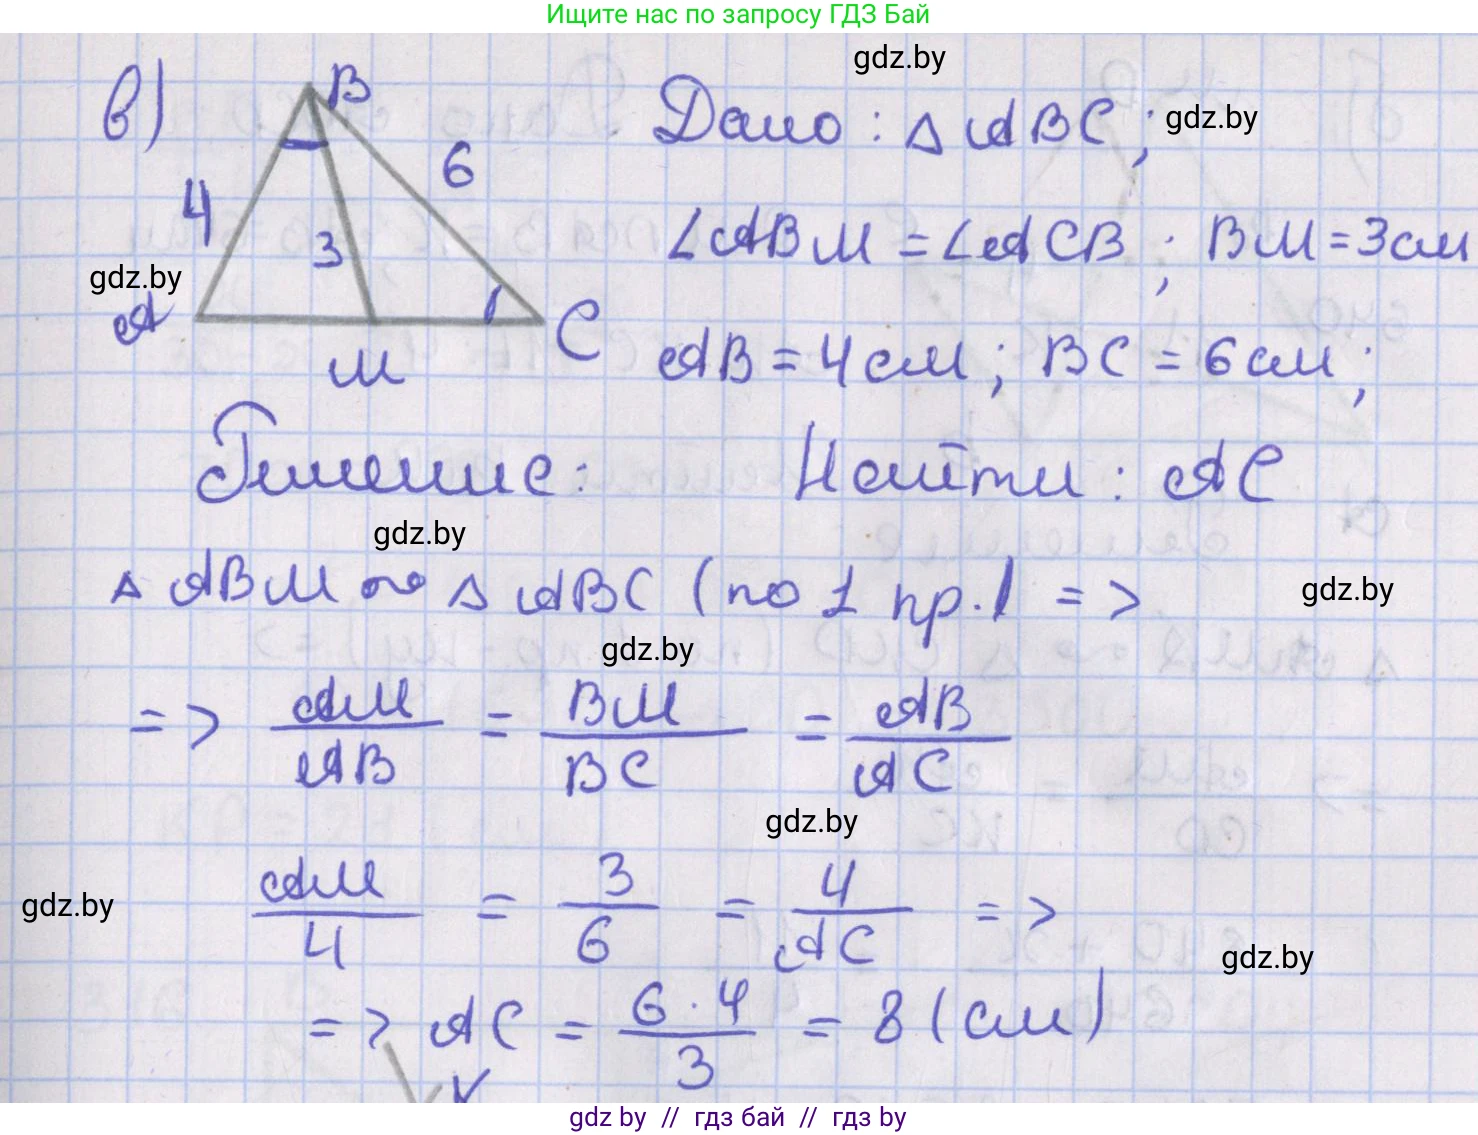 Ищите нас по запросу ГДЗ Бай
в)
B
4
6
3
A
M
C
gdz.by
Дано: △ABC;
gdz.by
∠ABM = ∠ACB; BM = 3см
gdz.by
AB = 4см; BC = 6см;
Решение:
Найти: AC
gdz.by
△ABM ∾ △ABC (по 1 пр.) =>
gdz.by
gdz.by
=> AM/AB = BM/BC = AB/AC
gdz.by
AM/4 = 3/6 = 4/AC =>
gdz.by
gdz.by
=> AC = 6·4/3 = 8 (см)
K
gdz by // гдз бай // гдз by